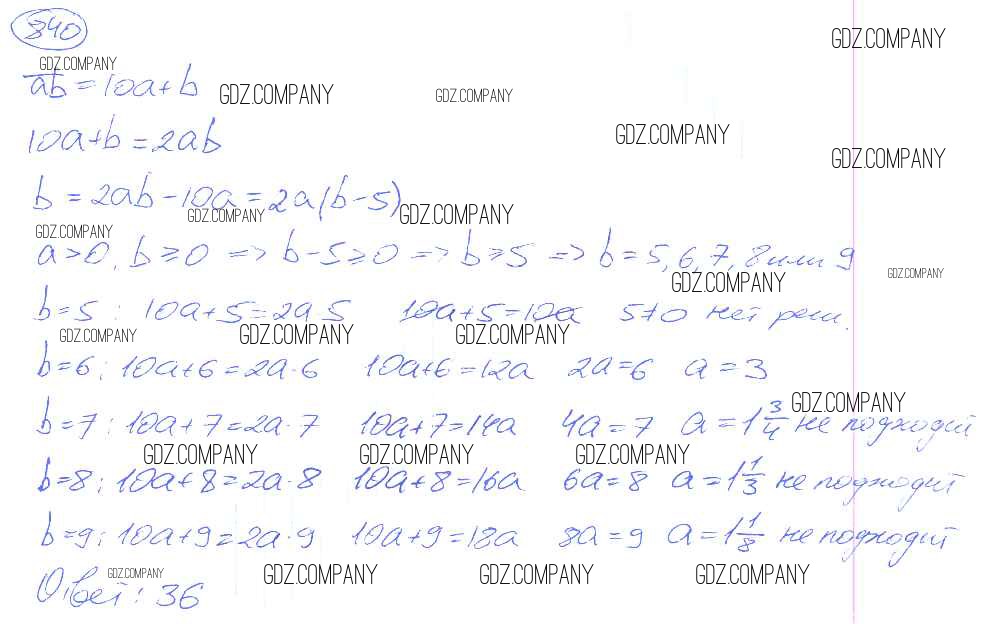 840
GDZ.COMPANY
GDZ.COMPANY
ab = 10a + b
GDZ.COMPANY
GDZ.COMPANY
GDZ.COMPANY
10a + b = 2ab
GDZ.COMPANY
b = 2ab - 10a = 2a(b - 5)
GDZ.COMPANY
GDZ.COMPANY
GDZ.COMPANY
a > 0, b ≥ 0 => b - 5 ≥ 0 => b ≥ 5 => b = 5, 6, 7, 8 или 9
GDZ.COMPANY
GDZ.COMPANY
b = 5 : 10a + 5 = 2a · 5 10a + 5 = 10a 5 ≠ 0 нет реш.
GDZ.COMPANY
GDZ.COMPANY
GDZ.COMPANY
b = 6 : 10a + 6 = 2a · 6 10a + 6 = 12a 2a = 6 a = 3
GDZ.COMPANY
b = 7 : 10a + 7 = 2a · 7 10a + 7 = 14a 4a = 7 a = 1 3/4 не подходит
GDZ.COMPANY
GDZ.COMPANY
GDZ.COMPANY
b = 8 : 10a + 8 = 2a · 8 10a + 8 = 16a 6a = 8 a = 1 1/3 не подходит
b = 9 : 10a + 9 = 2a · 9 10a + 9 = 18a 8a = 9 a = 1 1/8 не подходит
GDZ.COMPANY
GDZ.COMPANY
GDZ.COMPANY
GDZ.COMPANY
Ответ : 36